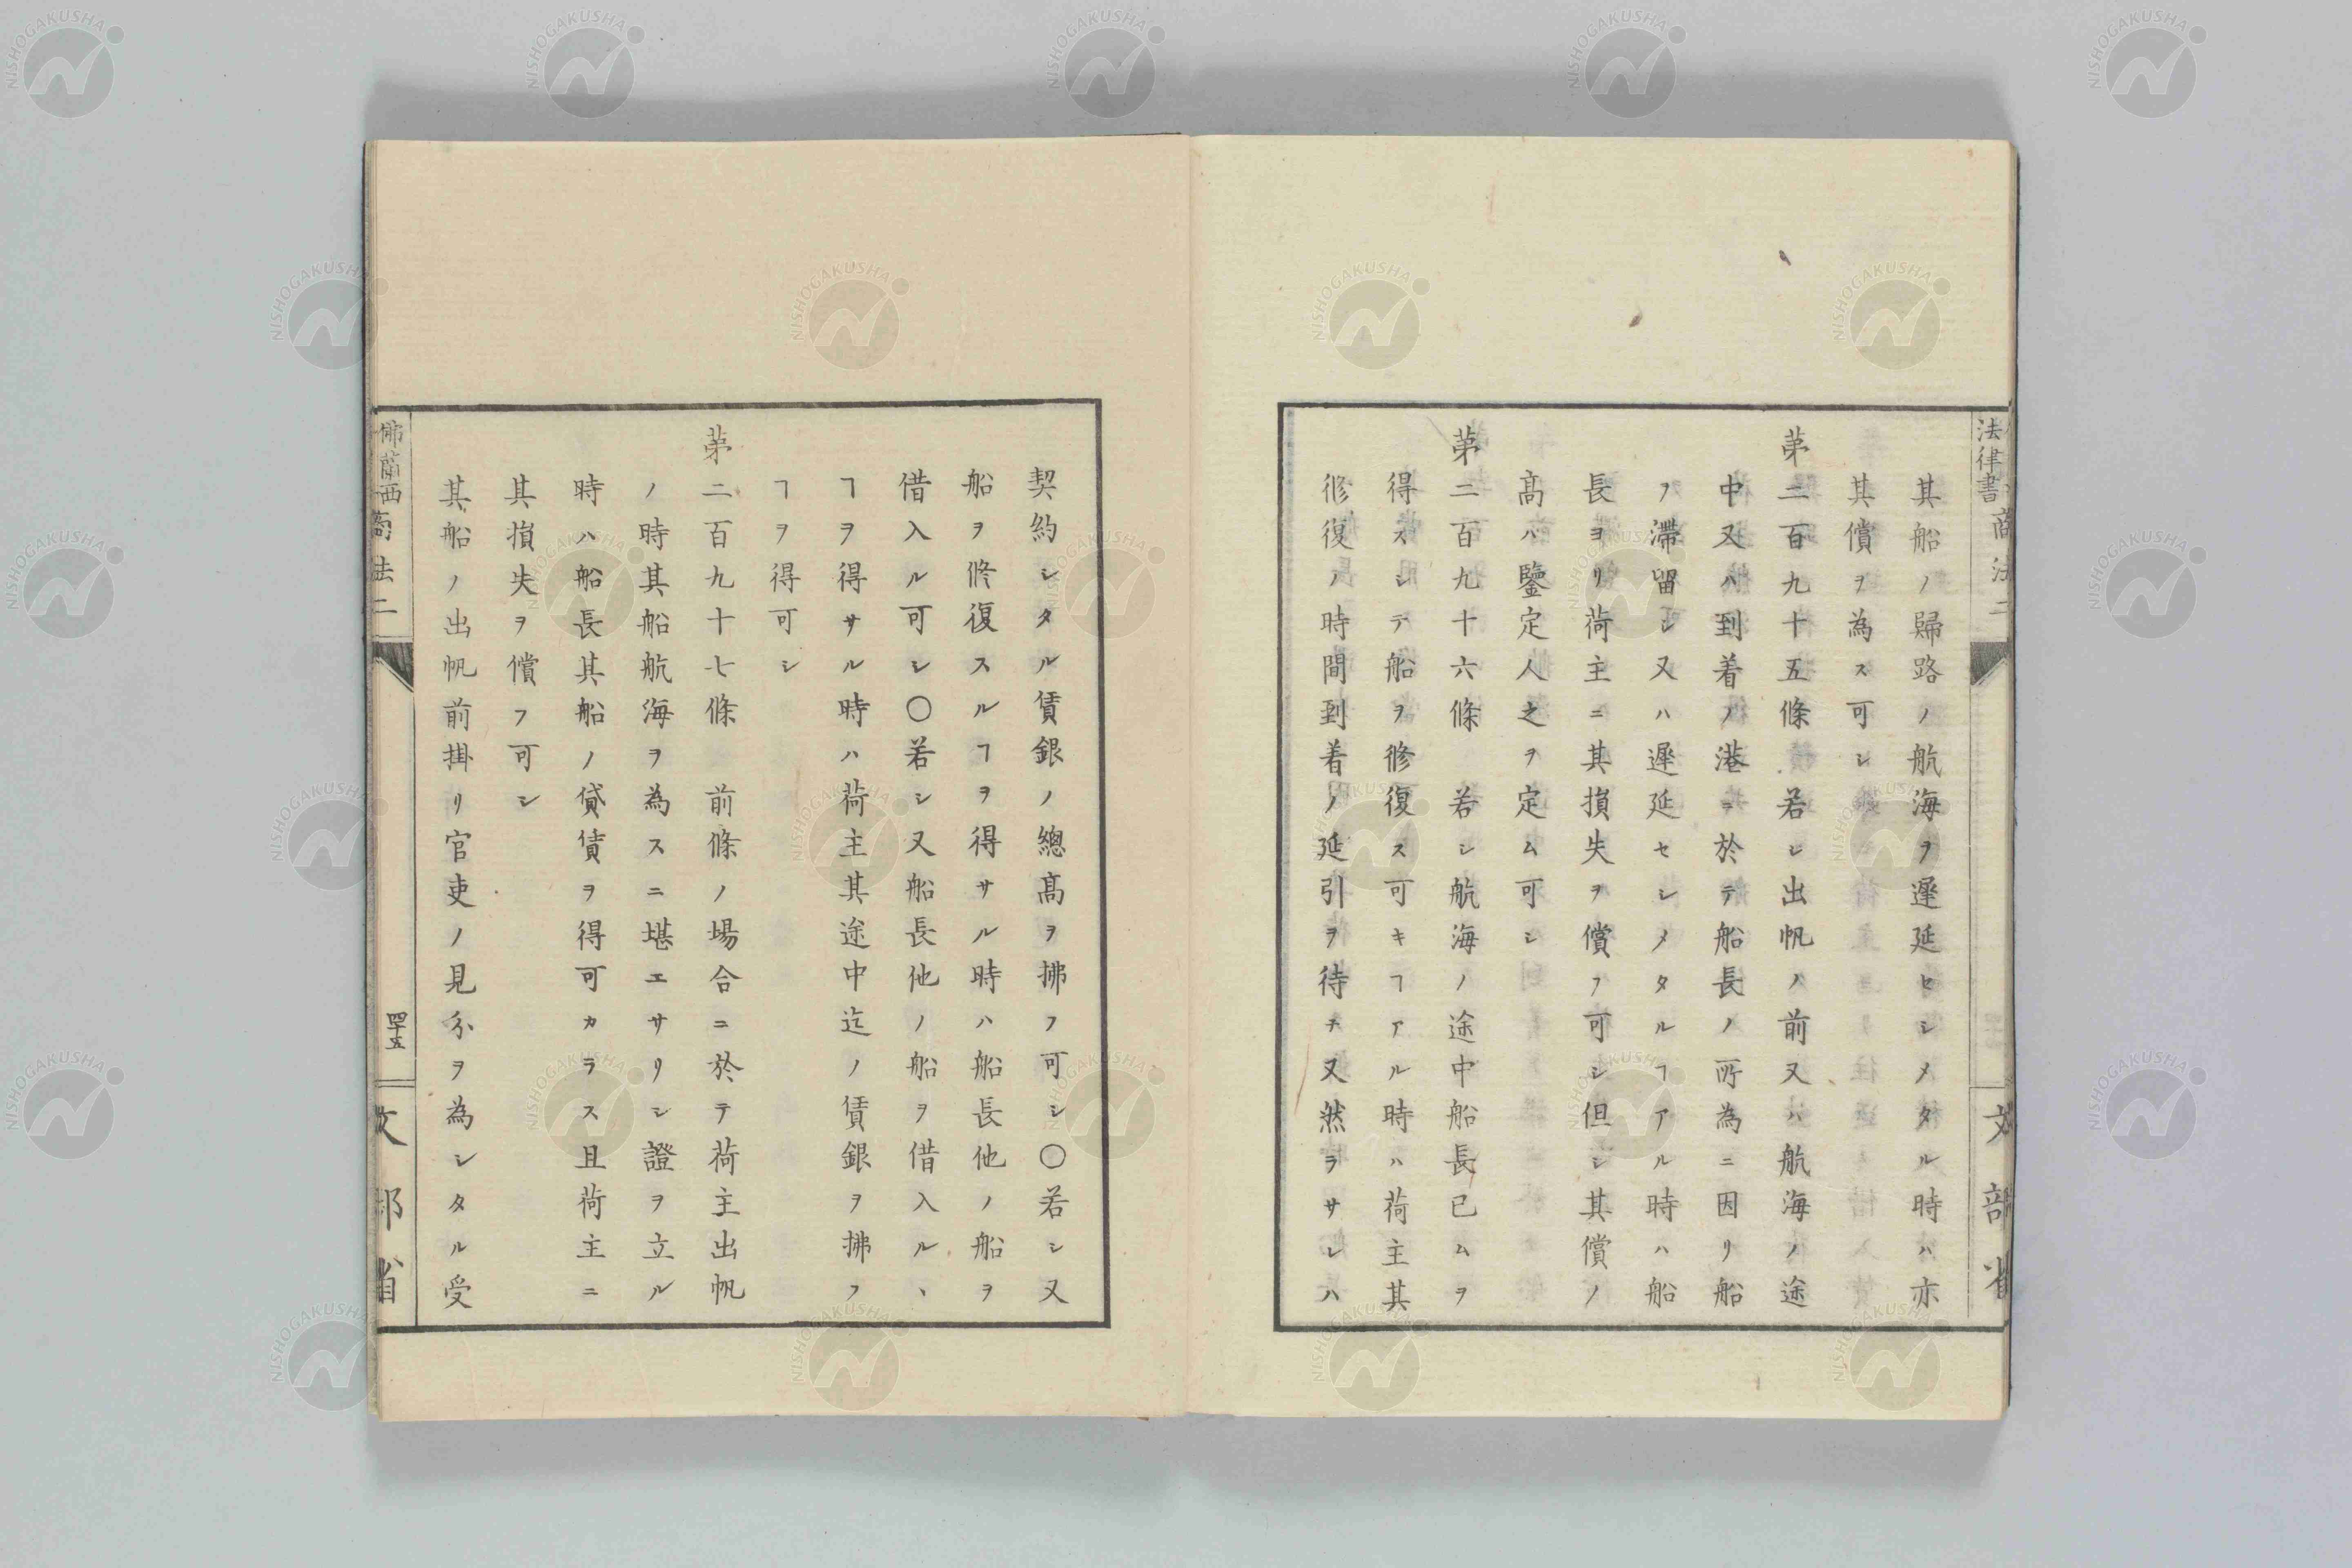 法律書商法二
文部省
其船ノ歸路ノ航海ヲ遲延セシメタル時ハ亦
其償ヲ為ス可シ
第二百九十五條 若シ出帆ノ前又ハ航海ノ途
中又ハ到着ノ港ニ於テ船長ノ所為ニ因リ船
ヲ滯留シ又ハ遲延セシメタルヿアル時ハ船
長ヨリ荷主ニ其損失ヲ償フ可シ但シ其償ノ
高ハ鑒定人之ヲ定ム可シ
第二百九十六條 若シ航海ノ途中船長已ムヲ
得スシテ船ヲ修復ス可キヿアル時ハ荷主其
修復ノ時間到着ノ延引ヲ待チ又然ラサレハ
契約シタル賃銀ノ總高ヲ拂フ可シ○若シ又
船ヲ修復スルヿヲ得サル時ハ船長他ノ船ヲ
借入ル可シ○若シ又船長他ノ船ヲ借入ルヽ
ヿヲ得サル時ハ荷主其途中迄ノ賃銀ヲ拂フ
ヿヲ得可シ
第二百九十七條 前條ノ場合ニ於テ荷主出帆
ノ時其船航海ヲ為スニ堪エサリシ證ヲ立ル
時ハ船長其船ノ貸賃ヲ得可カラス且荷主ニ
其損失ヲ償フ可シ
其船ノ出帆前掛リ官吏ノ見分ヲ為シタル受
佛蘭西商法二
四十五
文部省
NISHOGAKUSHA